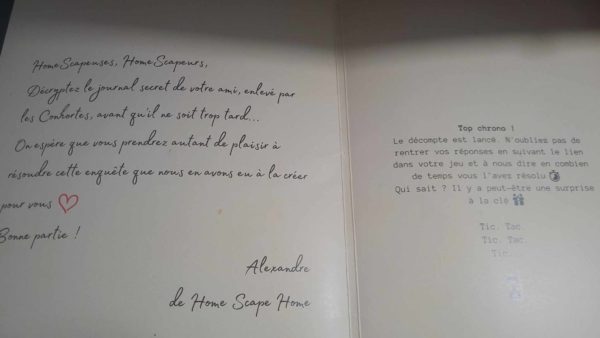 HomeScapeuses, HomeScapeurs,
Décryptez le journal secret de votre ami, enlevé par
les Conhortes, avant qu'il ne soit trop tard...
On espère que vous prendrez autant de plaisir à
résoudre cette enquête que nous en avons eu à la créer
pour vous ❤
Bonne partie !
Alexandre
de Home Scape Home
Top chrono !
Le décompte est lancé. N'oubliez pas de
rentrer vos réponses en suivant le lien
dans votre jeu et à nous dire en combien
de temps vous l'avez résolu ⏱
Qui sait ? Il y a peut-être une surprise
à la clé 🎁
Tic. Tac.
Tic. Tac.
Tic...